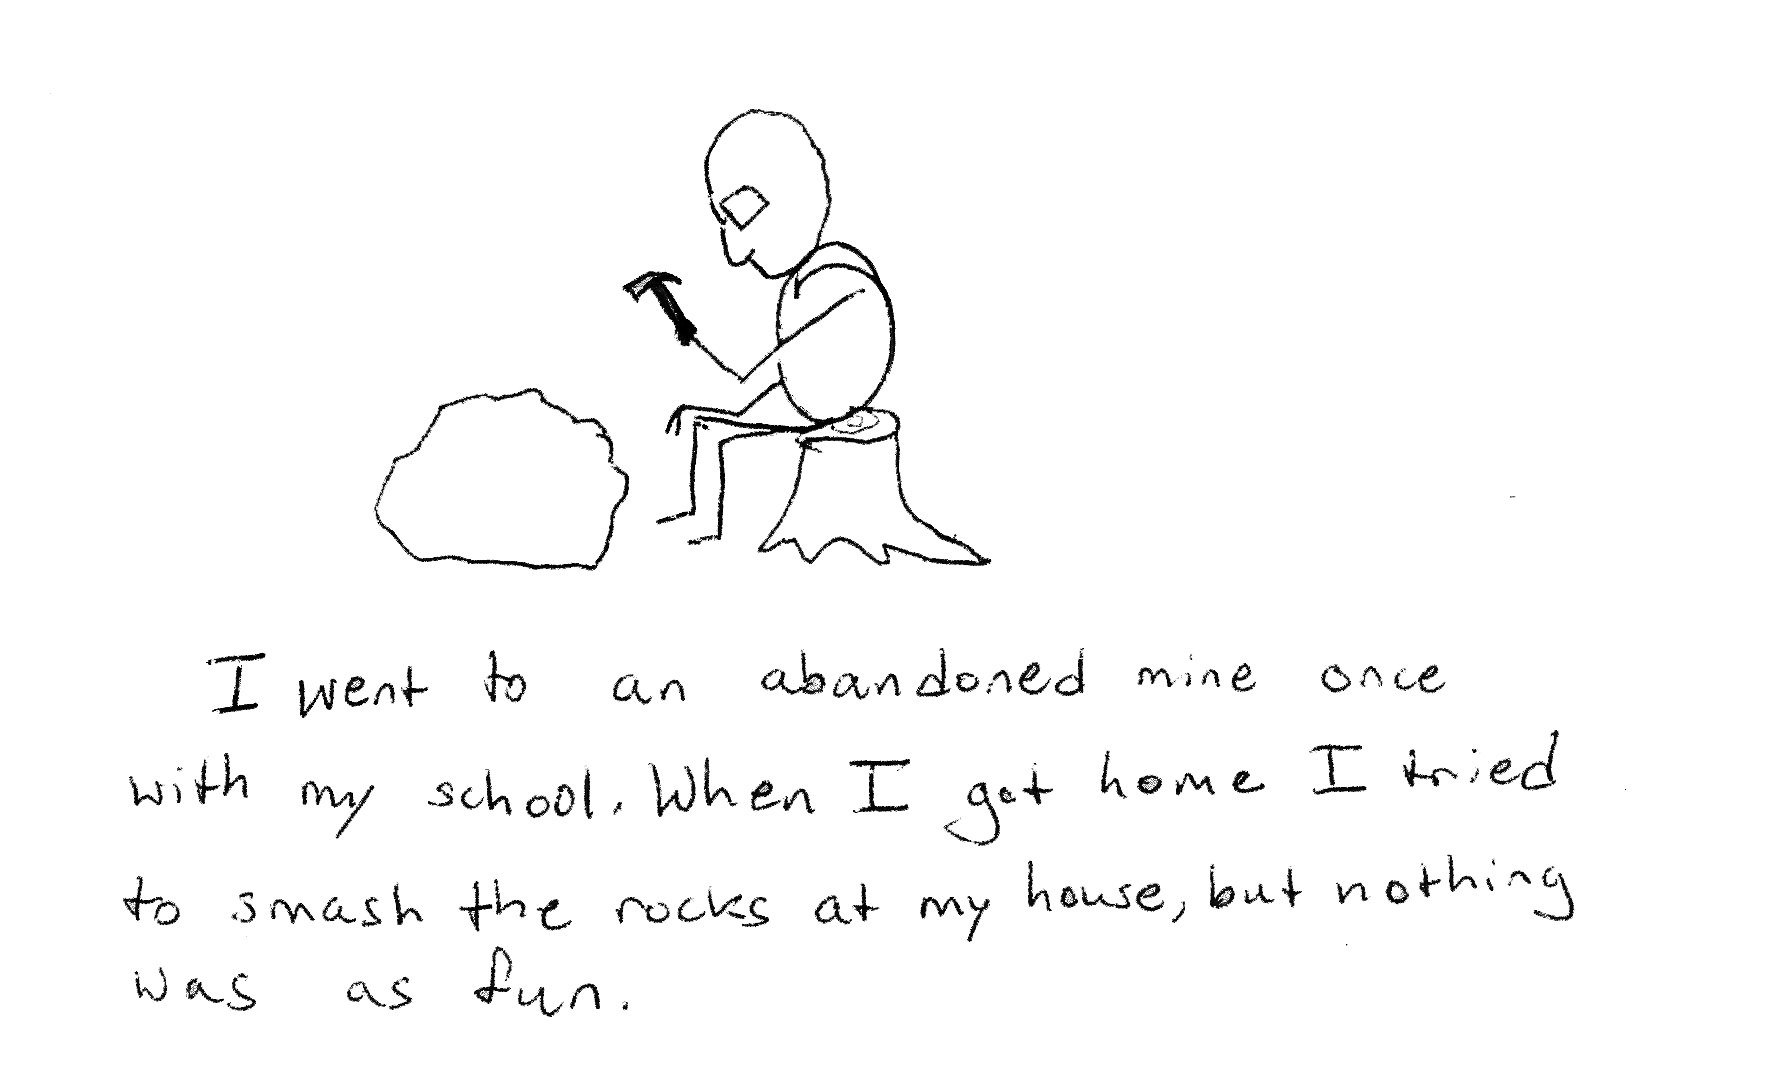 I went to an abandoned mine once
with my school. When I got home I tried
to smash the rocks at my house, but nothing
was as fun.